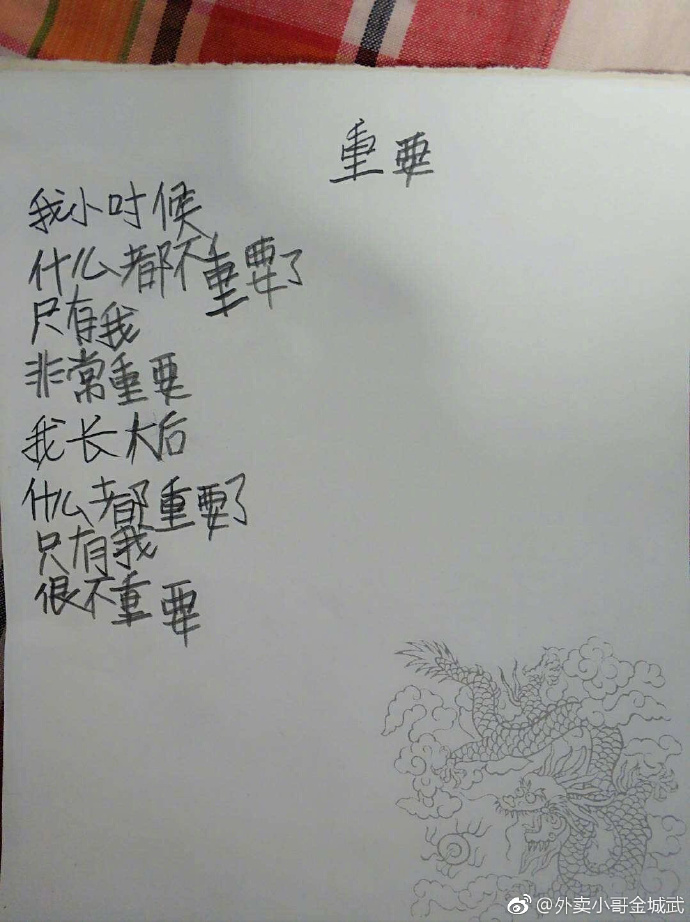 重要
我小时候
什么都不重要了
只有我
非常重要
我长大后
什么都重要了
只有我
很不重要
@外卖小哥金城武